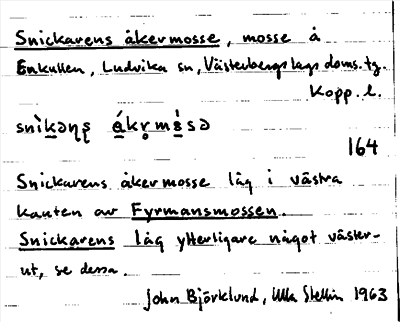 Snickarens åkermosse, mosse å
Enkullen, Ludvika sn, Västerbergslags doms. tg.
Kopp. l.
snìkəɳʂ ákr̥mɛ̀sə
164
Snickarens åkermosse låg i västra
kanten av Fyrmansmossen.
Snickarens låg ytterligare något väster-
ut, se dessa.
John Björklund, Ulla Stellin 1963